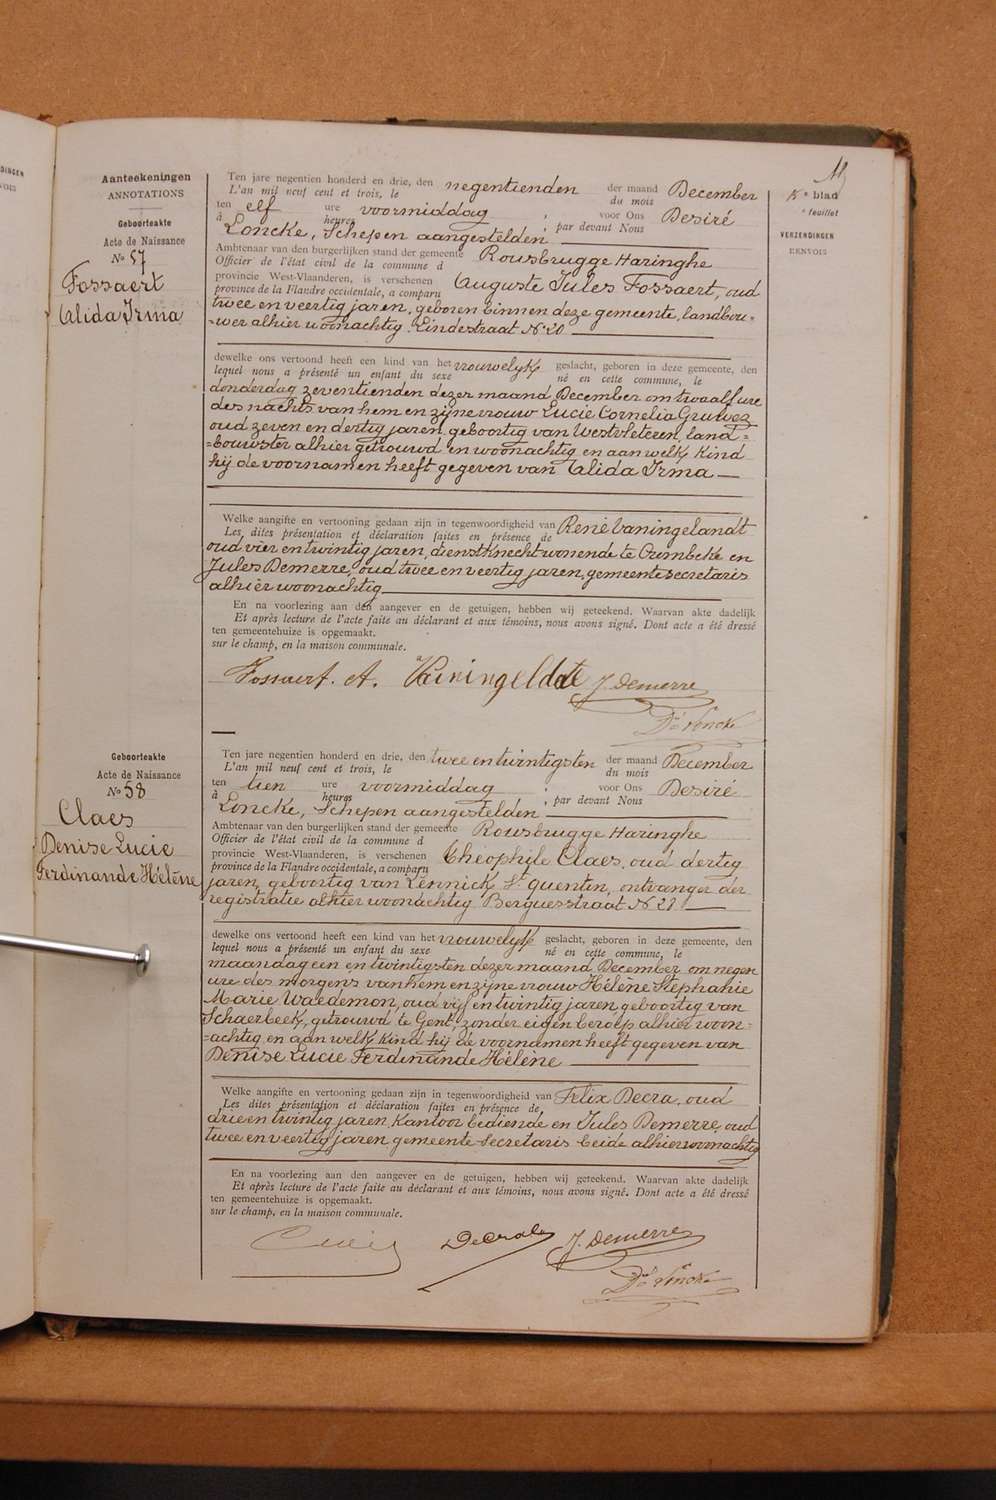 DINGEN
VOIS
Aanteekeningen
ANNOTATIONS
Geboorteakte
Acte de Naissance
No 57
Fossaert
Alida Irma
Ten jare negentien honderd en drie, den negentienden der maand December
L'an mil neuf cent et trois, le du mois
ten elf ure voormiddag , voor Ons Desiré
à heures , par devant Nous
Loncke, Schepen aangestelden
Ambtenaar van den burgerlijken stand der gemeente Rousbrugge Haringhe
Officier de l'état civil de la commune d
provincie West-Vlaanderen, is verschenen Auguste Jules Fossaert, oud
province de la Flandre occidentale, a comparu
twee en veertig jaren, geboren binnen deze gemeente, landbou-
-wer alhier woonachtig. Lindestraat No 20
dewelke ons vertoond heeft een kind van het vrouwelyk geslacht, geboren in deze gemeente, den
lequel nous a présenté un enfant du sexe né en cette commune, le
donderdag zeventienden dezer maand December om twaalf ure
des nachts van hem en zijne vrouw Lucie Cornelia Gruwez
oud zeven en dertig jaren, geboortig van Westvleteren, land=
=bouwster alhier getrouwd en woonachtig en aan welk kind
hij de voornamen heeft gegeven van Alida Irma
Welke aangifte en vertooning gedaan zijn in tegenwoordigheid van René Vaningelandt
Les dites présentation et déclaration faites en présence de
oud vier en twintig jaren, dienstknecht wonende te Crombeke en
Jules Demerre, oud twee en veertig jaren, gemeentesecretaris
alhier woonachtig
En na voorlezing aan den aangever en de getuigen, hebben wij geteekend. Waarvan akte dadelijk
Et après lecture de l'acte faite au déclarant et aux témoins, nous avons signé. Dont acte a été dressé
ten gemeentehuize is opgemaakt.
sur le champ, en la maison communale.
Fossaert. A. Vaningeldt J. Demerre
Dé Loncke
blad
feuillet
VERZENDINGEN
RENVOIS
Geboorteakte
Acte de Naissance
No 58
Claes
Denise Lucie
Ferdinande Hélène
Ten jare negentien honderd en drie, den twee en twintigsten der maand December
L'an mil neuf cent et trois, le du mois
ten tien ure voormiddag , voor Ons Desiré
à heures , par devant Nous
Loncke, Schepen aangestelden
Ambtenaar van den burgerlijken stand der gemeente Rousbrugge Haringhe
Officier de l'état civil de la commune d
provincie West-Vlaanderen, is verschenen Théophile Claes, oud dertig
province de la Flandre occidentale, a comparu
jaren, geboortig van Lennick St quentin, ontvanger der
registratie alhier woonachtig Berguesstraat No 29
dewelke ons vertoond heeft een kind van het vrouwelyk geslacht, geboren in deze gemeente, den
lequel nous a présenté un enfant du sexe né en cette commune, le
maandag een en twintigsten dezer maand December om negen
ure des morgens van hem en zyne vrouw Hélène Stéphanie
Marie Waedemon, oud vijf en twintig jaren, geboortig van
Schaerbeek, getrouwd te Gent, zonder eigen beroep alhier woon=
=achtig en aan welk kind hij de voornamen heeft gegeven van
Denise Lucie Ferdinande Hélène
Welke aangifte en vertooning gedaan zijn in tegenwoordigheid van Félix Decra, oud
Les dites présentation et déclaration faites en présence de
drie en twintig jaren, Kantoor bediende en Jules Demerre, oud
twee en veertig jaren gemeente secretaris beide alhier woonachtig
En na voorlezing aan den aangever en de getuigen, hebben wij geteekend. Waarvan akte dadelijk
Et après lecture de l'acte faite au déclarant et aux témoins, nous avons signé. Dont acte a été dressé
ten gemeentehuize is opgemaakt.
sur le champ, en la maison communale.
J. Demerre
Dé Loncke